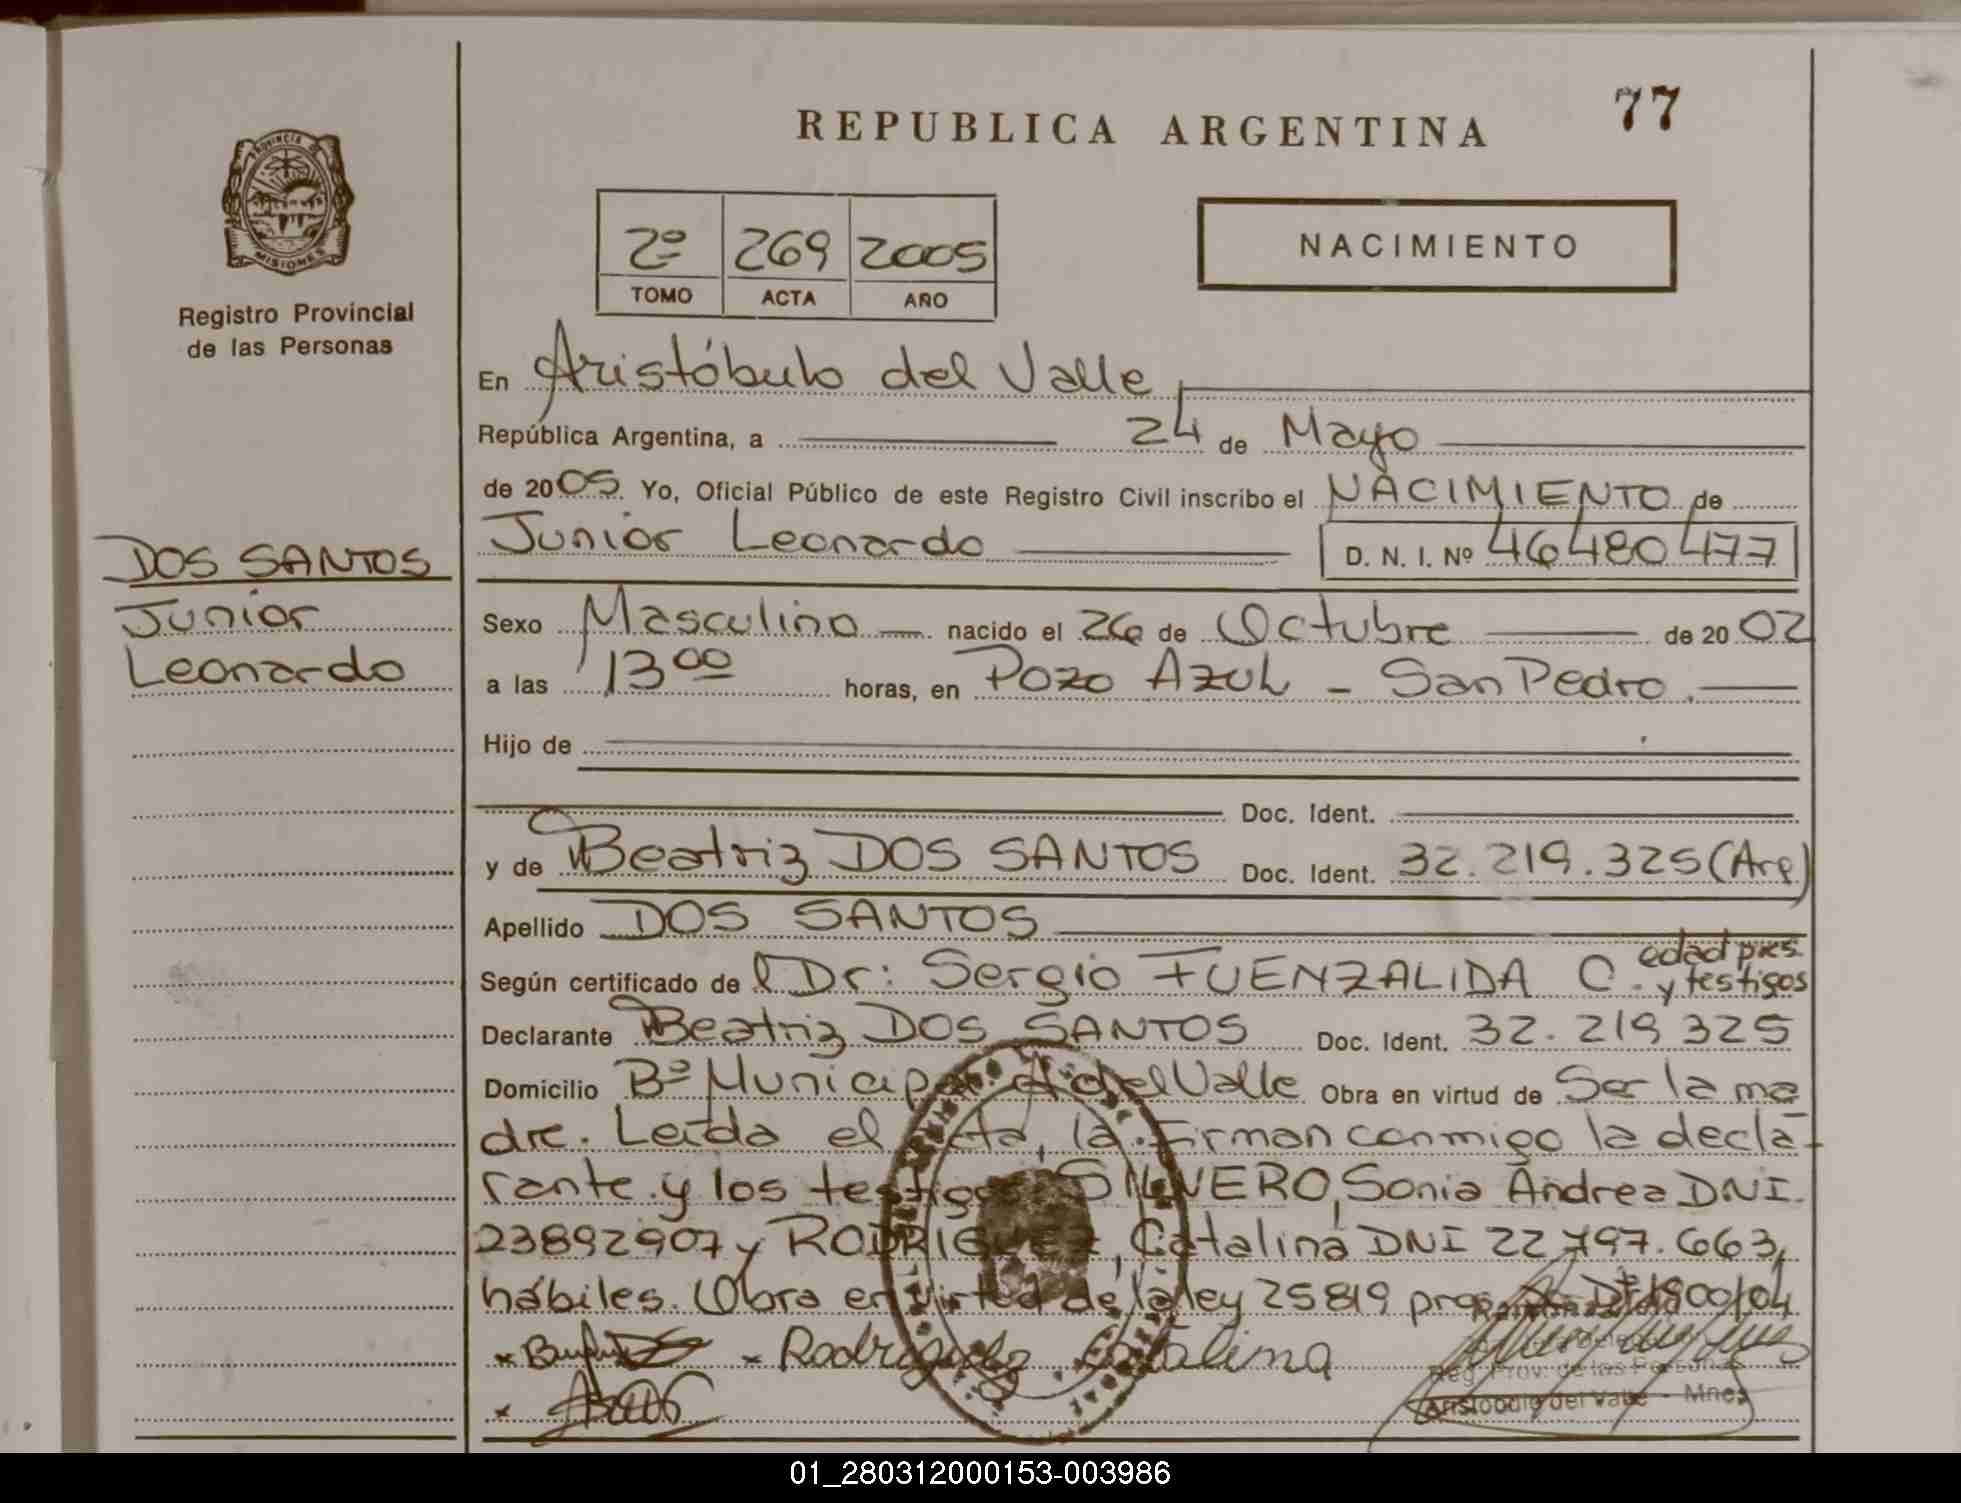 77
REPUBLICA ARGENTINA
PROVINCIA DE
MISIONES
Registro Provincial
de las Personas
2º 269 2005
TOMO ACTA AÑO
NACIMIENTO
En Aristóbulo del Valle
República Argentina, a 24 de Mayo
de 2005. Yo, Oficial Público de este Registro Civil inscribo el NACIMIENTO de
Junior Leonardo D. N. I. Nº 46480477
DOS SANTOS
Junior
Leonardo
Sexo Masculino nacido el 26 de Octubre de 2002
a las 13 00 horas, en Pozo Azul - San Pedro.
Hijo de
Doc. Ident.
y de Beatriz DOS SANTOS Doc. Ident. 32.219.325 (Arg)
Apellido DOS SANTOS
Según certificado de Dr: Sergio FUENZALIDA C. edad pres. y testigos
Declarante Beatriz DOS SANTOS Doc. Ident. 32.219 325
Domicilio Bº Municipal A del Valle Obra en virtud de Ser la ma
dre. Leída el acta, la firman conmigo la decla-
rante y los testigos SILVERO, Sonia Andrea DNI.
23892907 y RODRIGUEZ, Catalina DNI 22.797.663,
hábiles. Obra en virtud de la ley 25819 pror. Dº 1800/04
Rodriguez Catalina
Reg. Prov. de las Personas
Aristobulo del Valle - Mnes
01_280312000153-003986